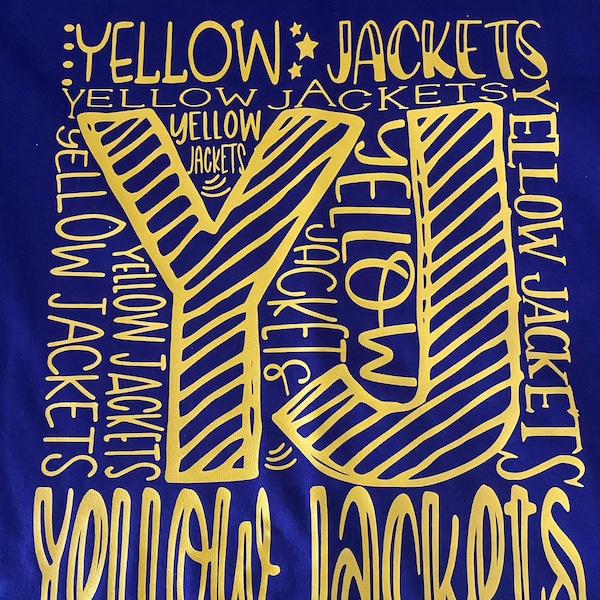 YELLOW JACKETS
YELLOW JACKETS
YELLOW
JACKETS
YJ
YELLOW JACKETS
YELLOW JACKETS
JACKETS
YELLOW
YELLOW JACKETS
YELLOW JACKETS